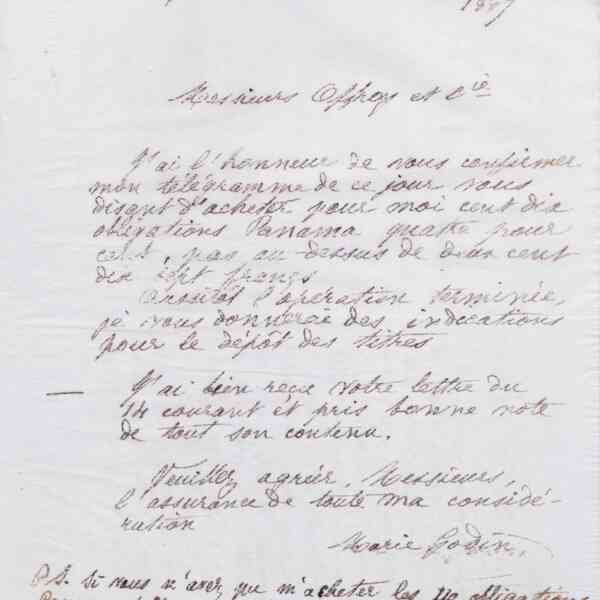 1887
Messieurs Offroy et Cie
J'ai l'honneur de vous confirmer
mon télégramme de ce jour vous
disant d'acheter pour moi cent dix
obligations Panama quatre pour
cent, pas au-dessus de deux cent
dix sept francs
Aussitôt l'opération terminée,
je vous donnerai des indications
pour le dépôt des titres
J'ai bien reçu votre lettre du
14 courant et pris bonne note
de tout son contenu.
Veuillez agréer, Messieurs,
l'assurance de toute ma considé-
ration
Marie Godin
P.S. Si vous n'avez pu m'acheter les 110 obligations